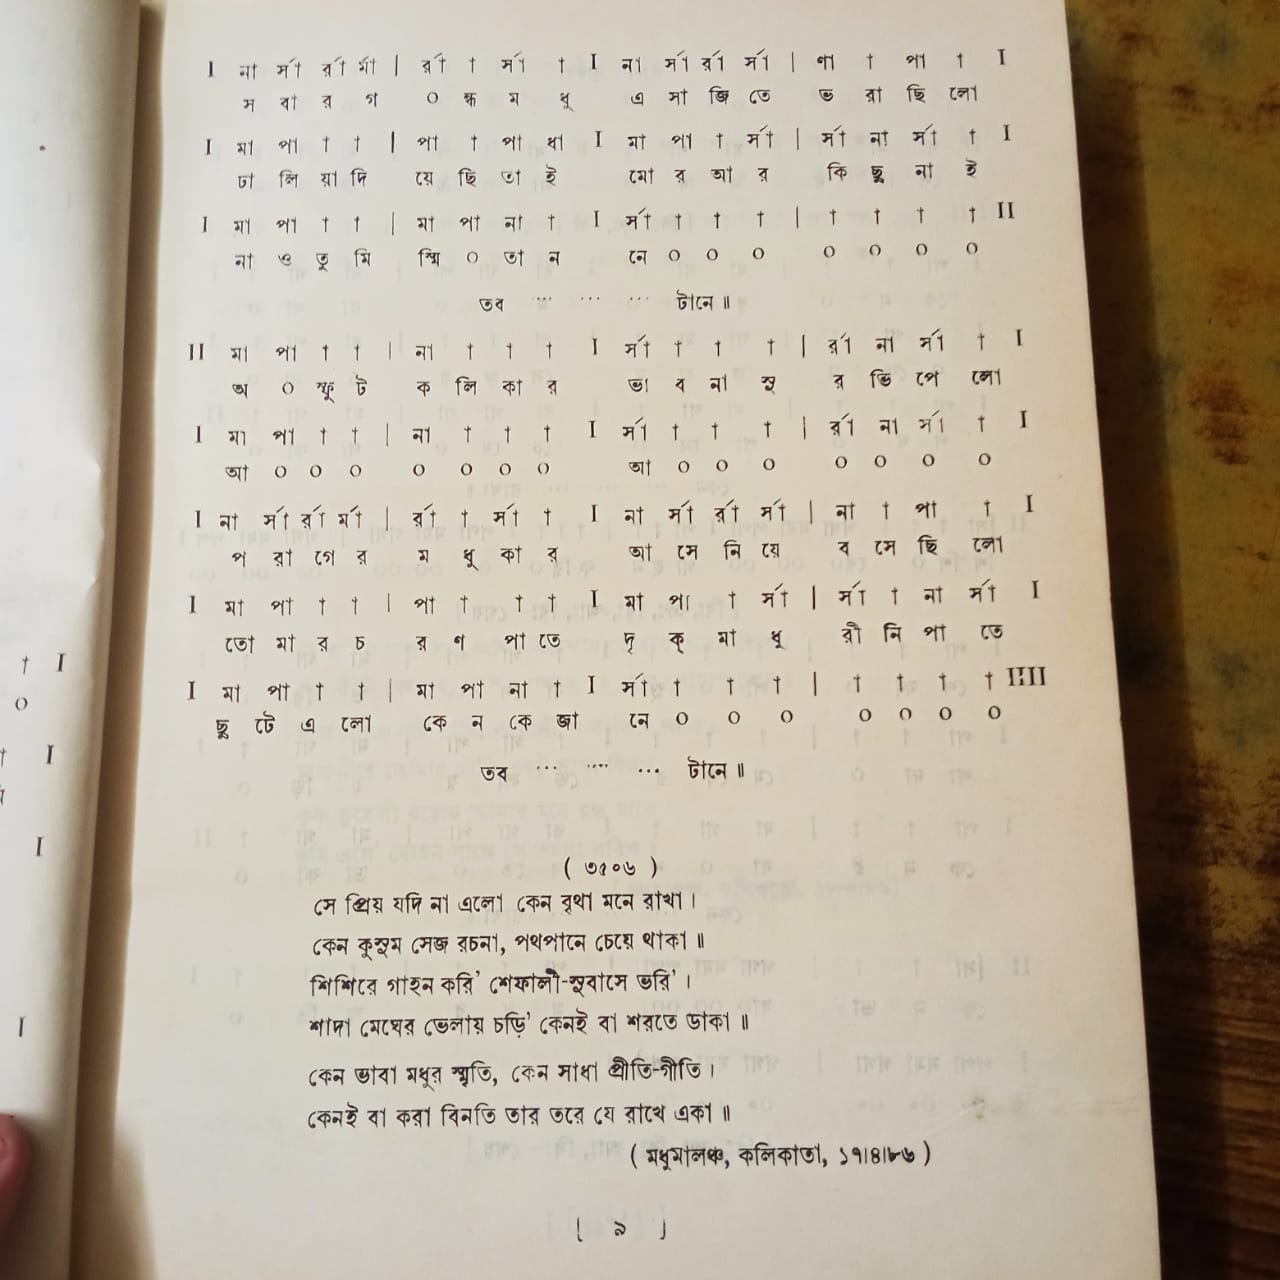 I না র্সা র্রা র্মা | র্রা † র্সা † I না র্সা র্রা র্সা | ণা † পা † I
ম বা র গ ০ ন্ধ ম ধু এ সা জি তে ভ রা ছি লো
I মা পা † † | পা † পা ধা I মা পা † র্সা | র্সা না র্সা † I
ঢা লি য়া দি য়ে ছি তা ই মো র আ র কি ছু না ই
I মা পা † † | মা পা না † I র্সা † † † | † † † † II
না ও তু মি স্মি ০ তা ন নে ০ ০ ০ ০ ০ ০ ০
তব ... ... ... টানে॥
II মা পা † † | না † † † I র্সা † † † | র্রা না র্সা † I
অ ০ স্ফু ট ক লি কা র ভা ব না সু র ভি পে লো
I মা পা † † | না † † † I র্সা † † † | র্রা না র্সা † I
আ ০ ০ ০ ০ ০ ০ ০ আ ০ ০ ০ ০ ০ ০ ০
I না র্সা র্রা র্মা | র্রা † র্সা † I না র্সা র্রা র্সা | না † পা † I
প রা গে র ম ধু কা র আ সে নি য়ে ব সে ছি লো
I মা পা † † | পা † † † I মা পা † র্সা | র্সা † না র্সা I
তো মা র চ র ণ পা তে দৃ ক্ মা ধু রী নি পা তে
I মা পা † † | মা পা না † I র্সা † † † | † † † † IIII
ছু টে এ লো কে ন কে জা নে ০ ০ ০ ০ ০ ০ ০
তব ... ... ... টানে॥
( ৩৫০৬ )
সে প্রিয় যদি না এলো কেন বৃথা মনে রাখা।
কেন কুসুম সেজ রচনা, পথপানে চেয়ে থাকা॥
শিশিরে গাহন করি' শেফালী-সুবাসে ভরি'।
শাদা মেঘের ভেলায় চড়ি' কেনই বা শরতে ডাকা॥
কেন ভাবা মধুর স্মৃতি, কেন সাধা প্রীতি-গীতি।
কেনই বা করা বিনতি তার তরে যে রাখে একা॥
( মধুমালঞ্চ, কলিকাতা, ১৭।৪।৮৬ )
[ ৯ ]
† I
০
† I
I
I